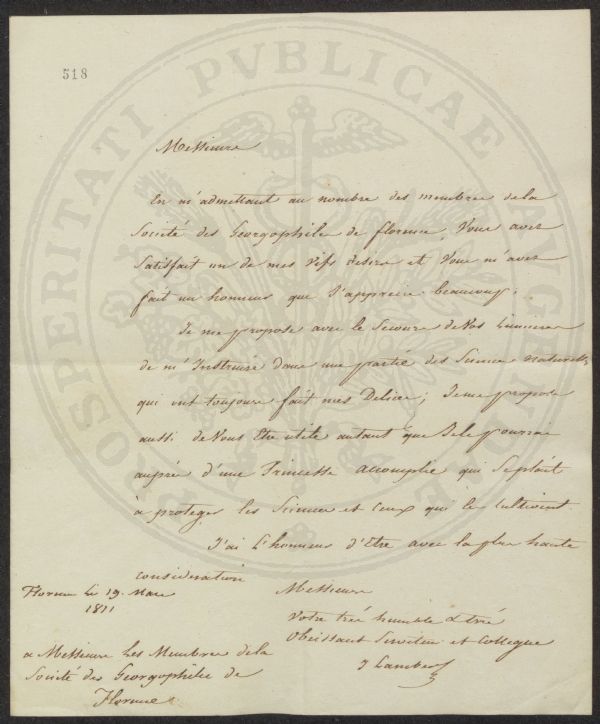 518
PROSPERITATI PVBLICAE AVGENDAE
Messieurs
En m'admettant au nombre des membres de la
Société des Georgophiles de florence, Vous avez
Satisfait un de mes vifs desirs et Vous m'avez
fait un honneur que J'apprecie beaucoup.
Je me propose avec le Secours de Vos Lumieres
de m'Instruire dans une partie des Sciences naturelles
qui ont toujours fait mes Delices; Je me propose
aussi de Vous Etre utile autant que Je le pourrai
auprès d'une Princesse accomplie qui Se plait
à proteger les Sciences et ceux qui les cultivent.
J'ai L'honneur d'Etre avec la plus haute
consideration
Messieurs
Votre très humble & très
Obeissant Serviteur et Collegue
J Lambert
Florence Le 19. Mars
1811
a Messieurs Les Membres de la
Société des Georgophiles de
Florence